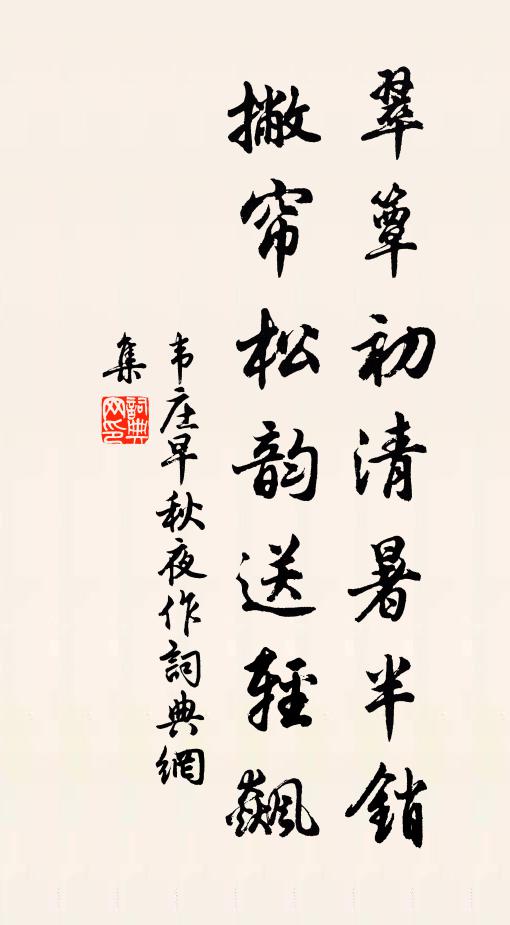 翠簟初清暑半銷
撇帘松韵送輕飆
韦庄早秋夜作詞典網
集
詞典网印